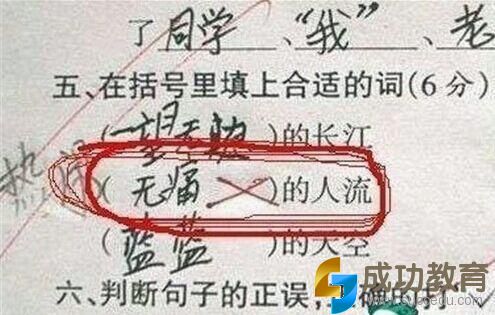 了同学、“我”、老
五、在括号里填上合适的词(6分)
(一望无
)的长江
热闹
(无痛)的人流
(蓝蓝)的天空
六、判断句子的正误,正确的打
成功教育